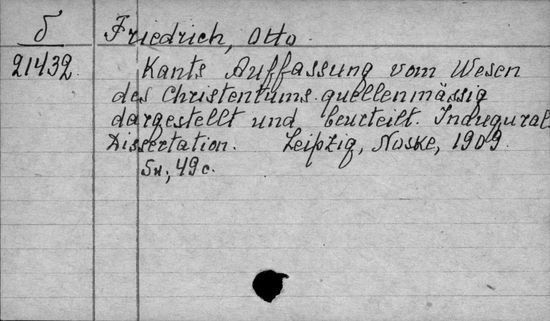 δ Friedrich, Otto.
21432. Kants Auffassung vom Wesen
des Christentums quellenmässig
dargestellt und beurteilt. Inaugural
Dissertation. Leipzig, Noske, 1909.
49 c.